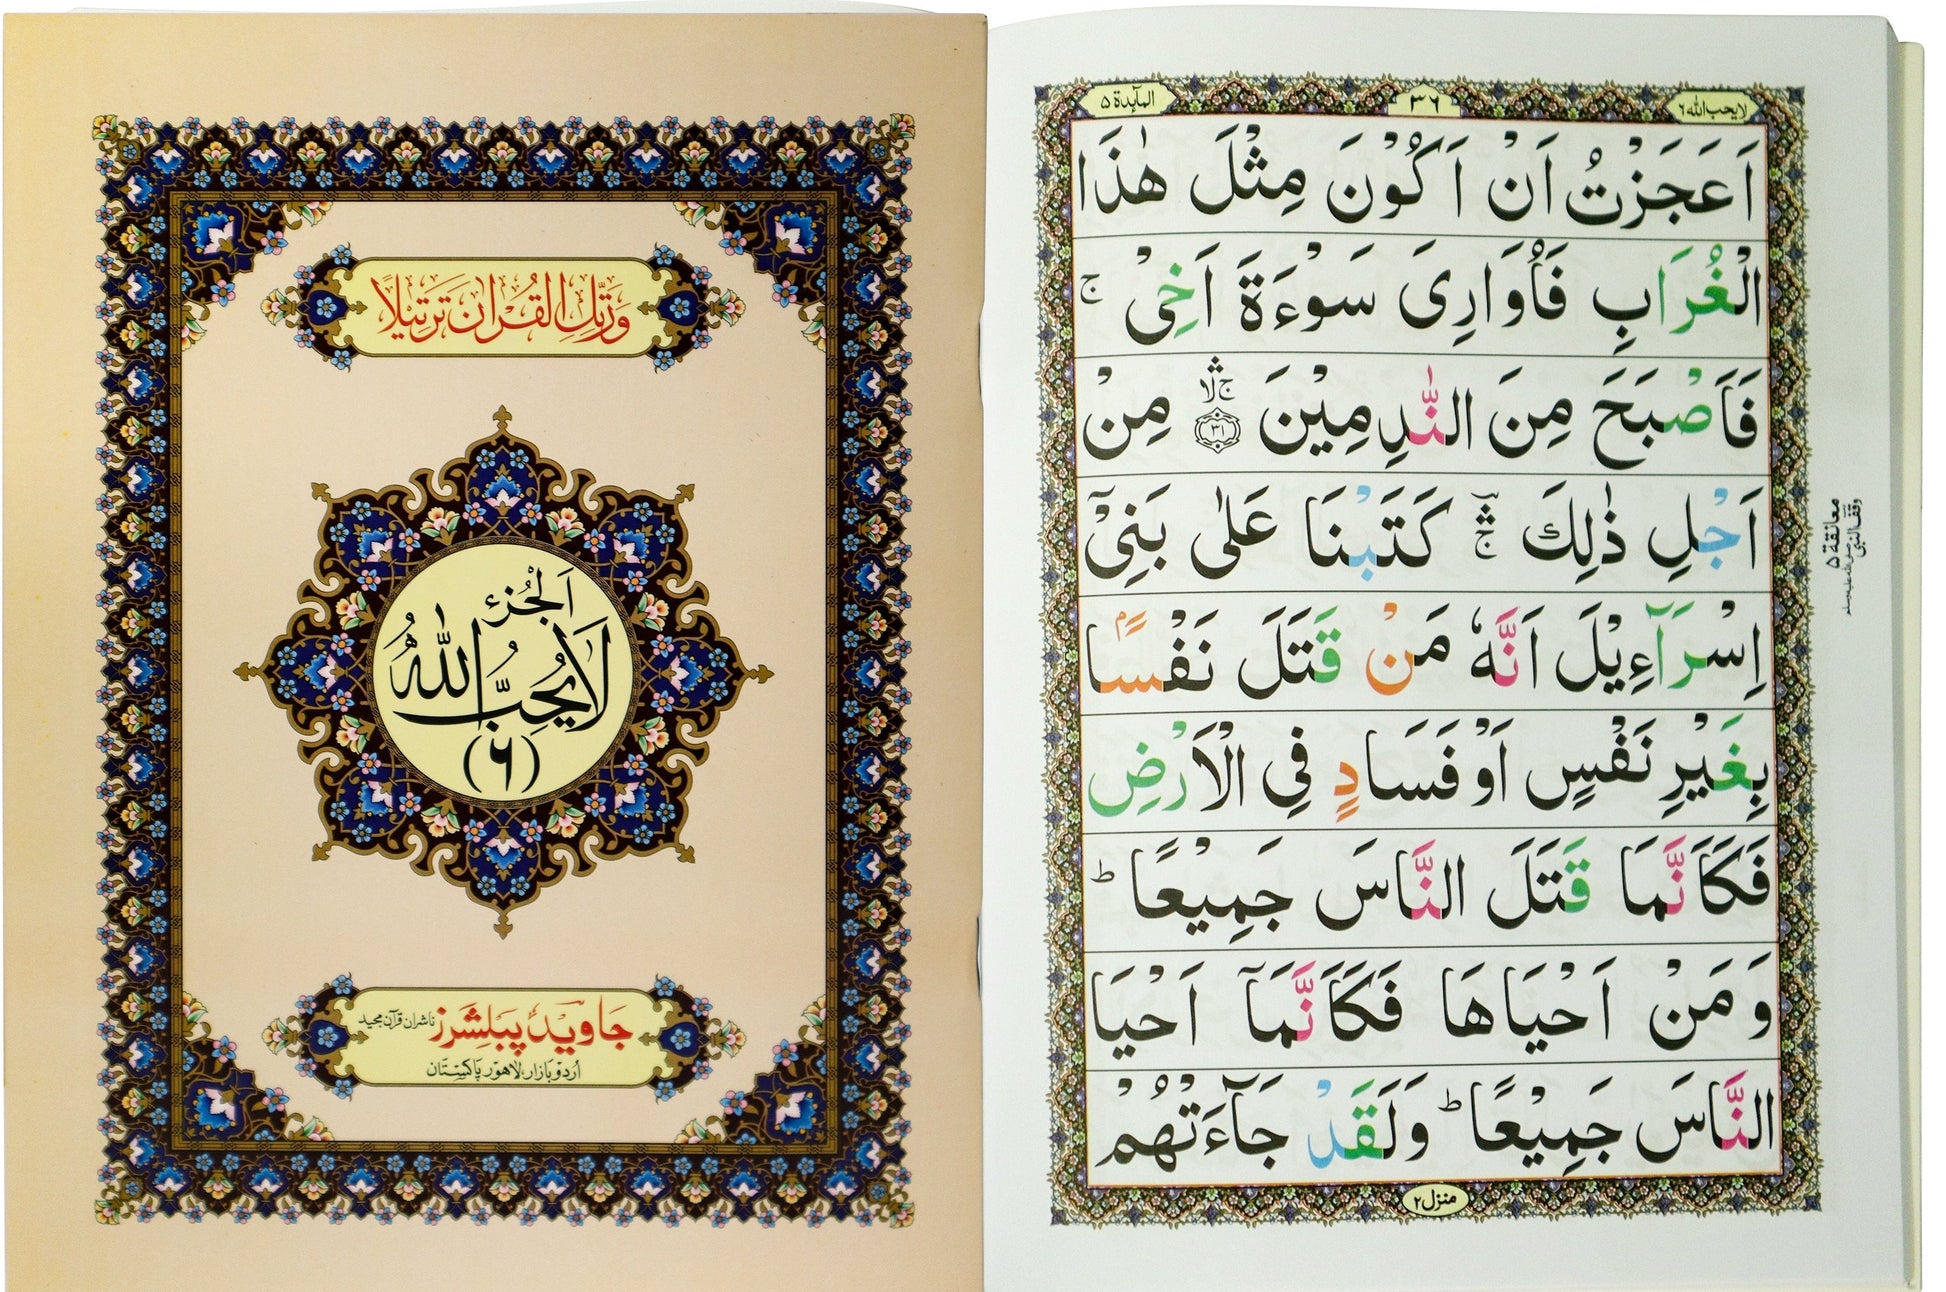 وَرَتِّلِ الْقُرْاٰنَ تَرْتِيلًا
اَلْجُزْءُ
لَا يُحِبُّ اللّٰهُ
(٦)
جاوید پبلشرز ناشران قرآن مجید
اُردو بازار، لاہور پاکستان
لایحب اللہ ٦
٣٦
المآئدة ٥
اَعَجَزْتُ اَنْ اَكُوْنَ مِثْلَ هٰذَا
الْغُرَابِ فَاُوَارِیَ سَوْءَةَ اَخِیْ ۚ
فَاَصْبَحَ مِنَ النّٰدِمِیْنَ ۛۚۙ ﴿٣١﴾ مِنْ
اَجْلِ ذٰلِكَ ۛۚ كَتَبْنَا عَلٰی بَنِیْۤ
اِسْرَآءِیْلَ اَنَّهٗ مَنْ قَتَلَ نَفْسًۢا
بِغَیْرِ نَفْسٍ اَوْ فَسَادٍ فِی الْاَرْضِ
فَكَاَنَّمَا قَتَلَ النَّاسَ جَمِیْعًا ؕ
وَ مَنْ اَحْیَاهَا فَكَاَنَّمَاۤ اَحْیَا
النَّاسَ جَمِیْعًا ؕ وَ لَقَدْ جَآءَتْهُمْ
معانقة ٥
وقف النبی صلی اللہ علیہ وسلم
منزل ٢